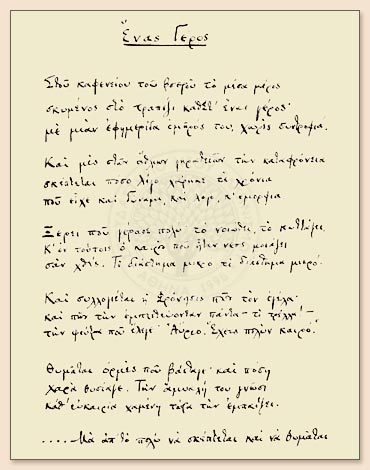 Ἕνας Γέρος
Στοῦ καφενείου τοῦ βοεροῦ τὸ μέσα μέρος
σκυμένος στὸ τραπέζι κάθετ' ἕνας γέρος·
μὲ μιὰν ἐφημερίδα ἐμπρός του, χωρὶς συντροφιά.
Καὶ μὲς στῶν ἄθλιων γηρατειῶν τὴν καταφρόνεια
σκέπτεται πόσο λίγο χάρηκε τὰ χρόνια
ποῦ εἶχε καὶ δύναμι, καὶ λόγο, κ' ἐμορφιά.
Ξέρει ποῦ γέρασε πολύ· τὸ νοιώθει, τὸ κυττάζει.
Κ' ἐν τούτοις ὁ καιρὸς ποῦ ἦταν νέος μοιάζει
σὰν χθές. Τί διάστημα μικρό, τί διάστημα μικρό.
Καὶ συλλογιέται ἡ Φρόνησις πῶς τὸν ἐγέλα·
καὶ πῶς τὴν ἐμπιστεύονταν πάντα — τί τρέλλα! —
τὴν ψεύτρα ποῦ ἔλεγε· «Αὔριο. Ἔχεις πολὺν καιρό.»
Θυμᾶται ὁρμὲς ποῦ βάσταγε· καὶ πόση
χαρὰ θυσίαζε. Τὴν ἄμυαλή του γνῶσι
κάθ' εὐκαιρία χαμένη τώρα τὴν ἐμπαίζει.
.....Μὰ ἀπ' τὸ πολὺ νὰ σκέπτεται καὶ νὰ θυμᾶται